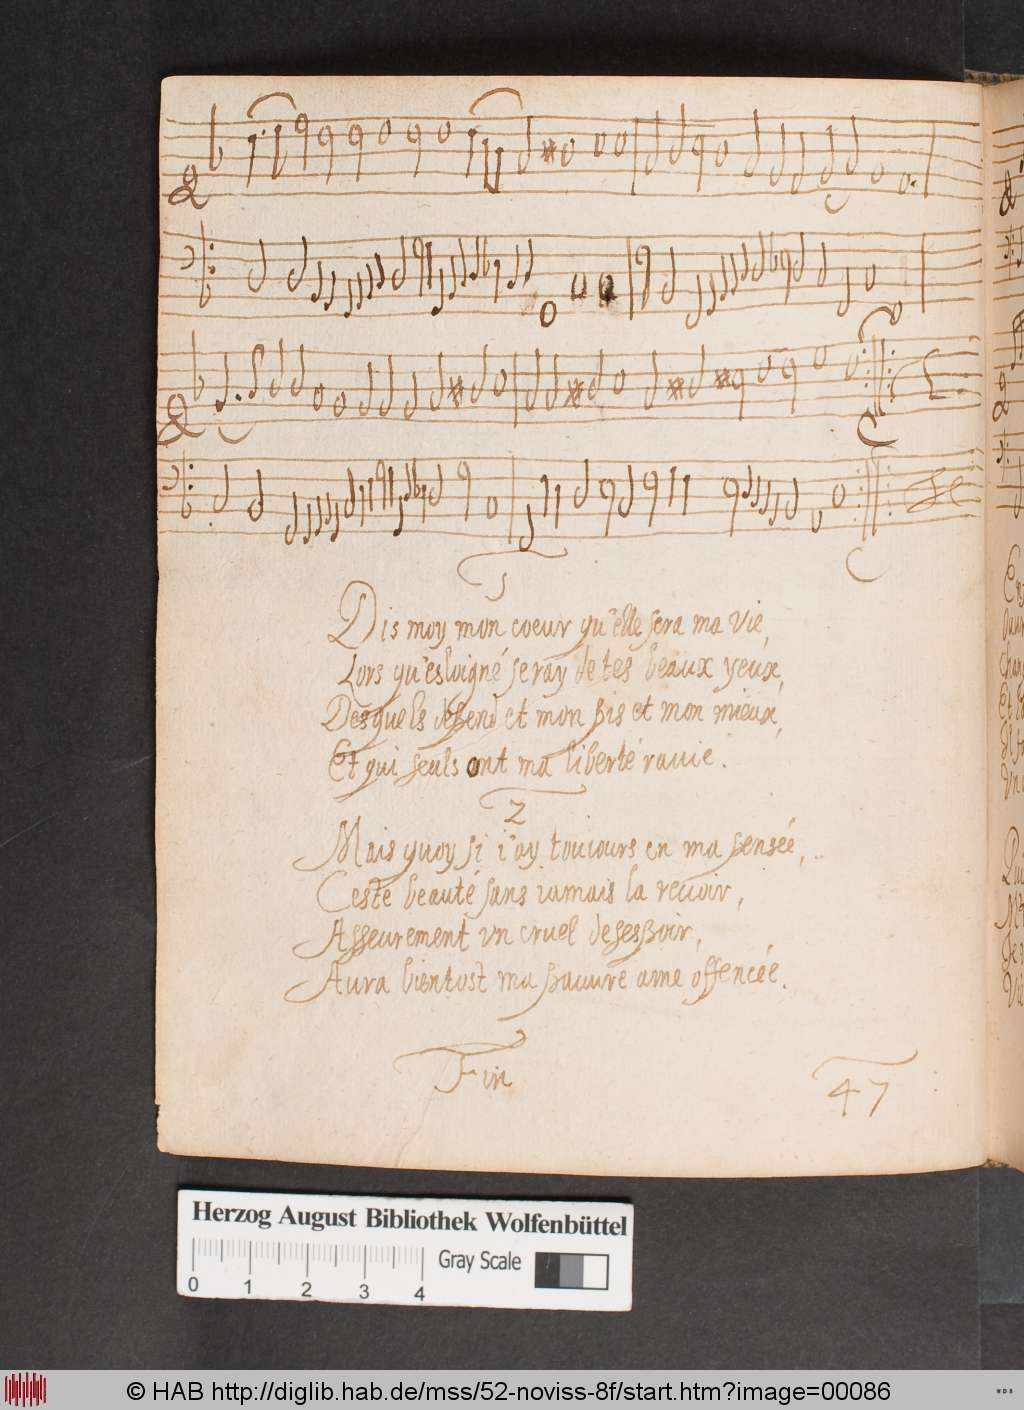 1
Dis moy mon coeur qu'elle sera ma vie,
Lors qu'esloigné seray de tes beaux yeux,
Desquels despend et mon pis et mon mieux,
Et qui seuls ont ma liberté rauie.
2
Mais quoy si i'ay toucours en ma pensée,
Ceste beauté sans iamais la reuoir,
Asseurement vn cruel desespoir,
Aura bientost ma pauure ame offencée.
Fin
47
Herzog August Bibliothek Wolfenbüttel
0 1 2 3 4
Gray Scale
© HAB http://diglib.hab.de/mss/52-noviss-8f/start.htm?image=00086